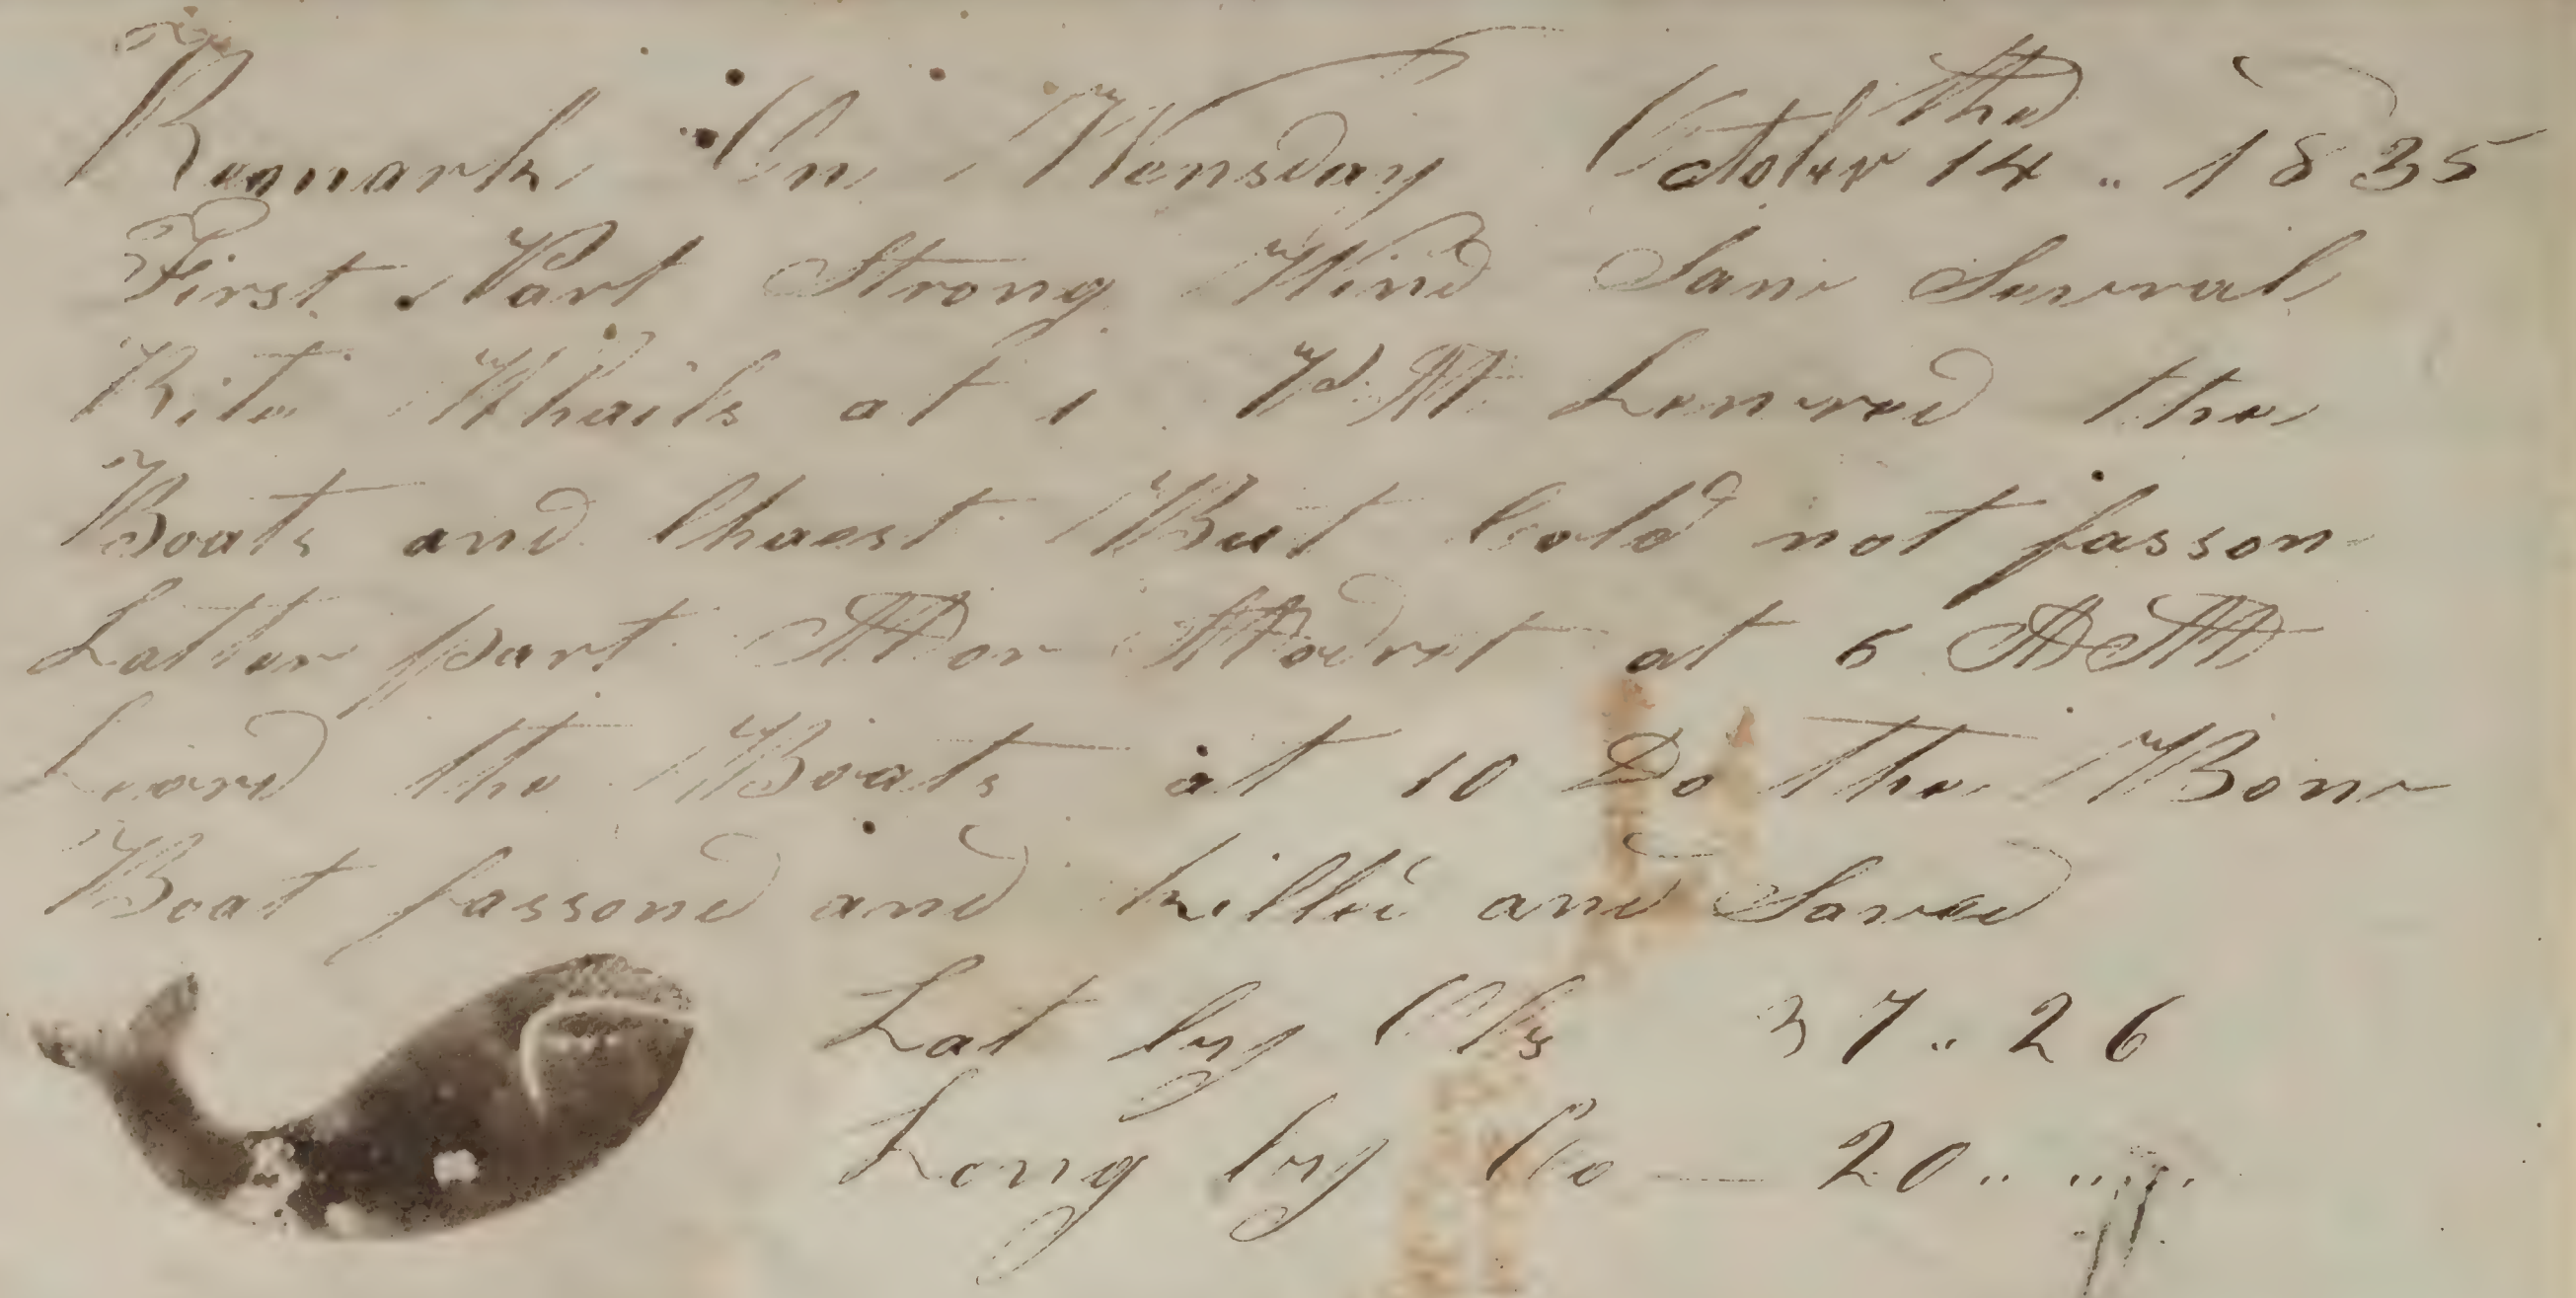 Remark On Wensday October the 14 .. 1835
First Part Strong Wind Saw Several
Rite Whails at 1 P.M Lowred the
Boats and Chaest But Cold not fasson
Latter part Mor Modret at 6 AM
Loard the Boats at 10 Do the Bow
Boat fassond and killed and Saved
Lat by Obs 37 .. 26
Long by Cro — 20 ..